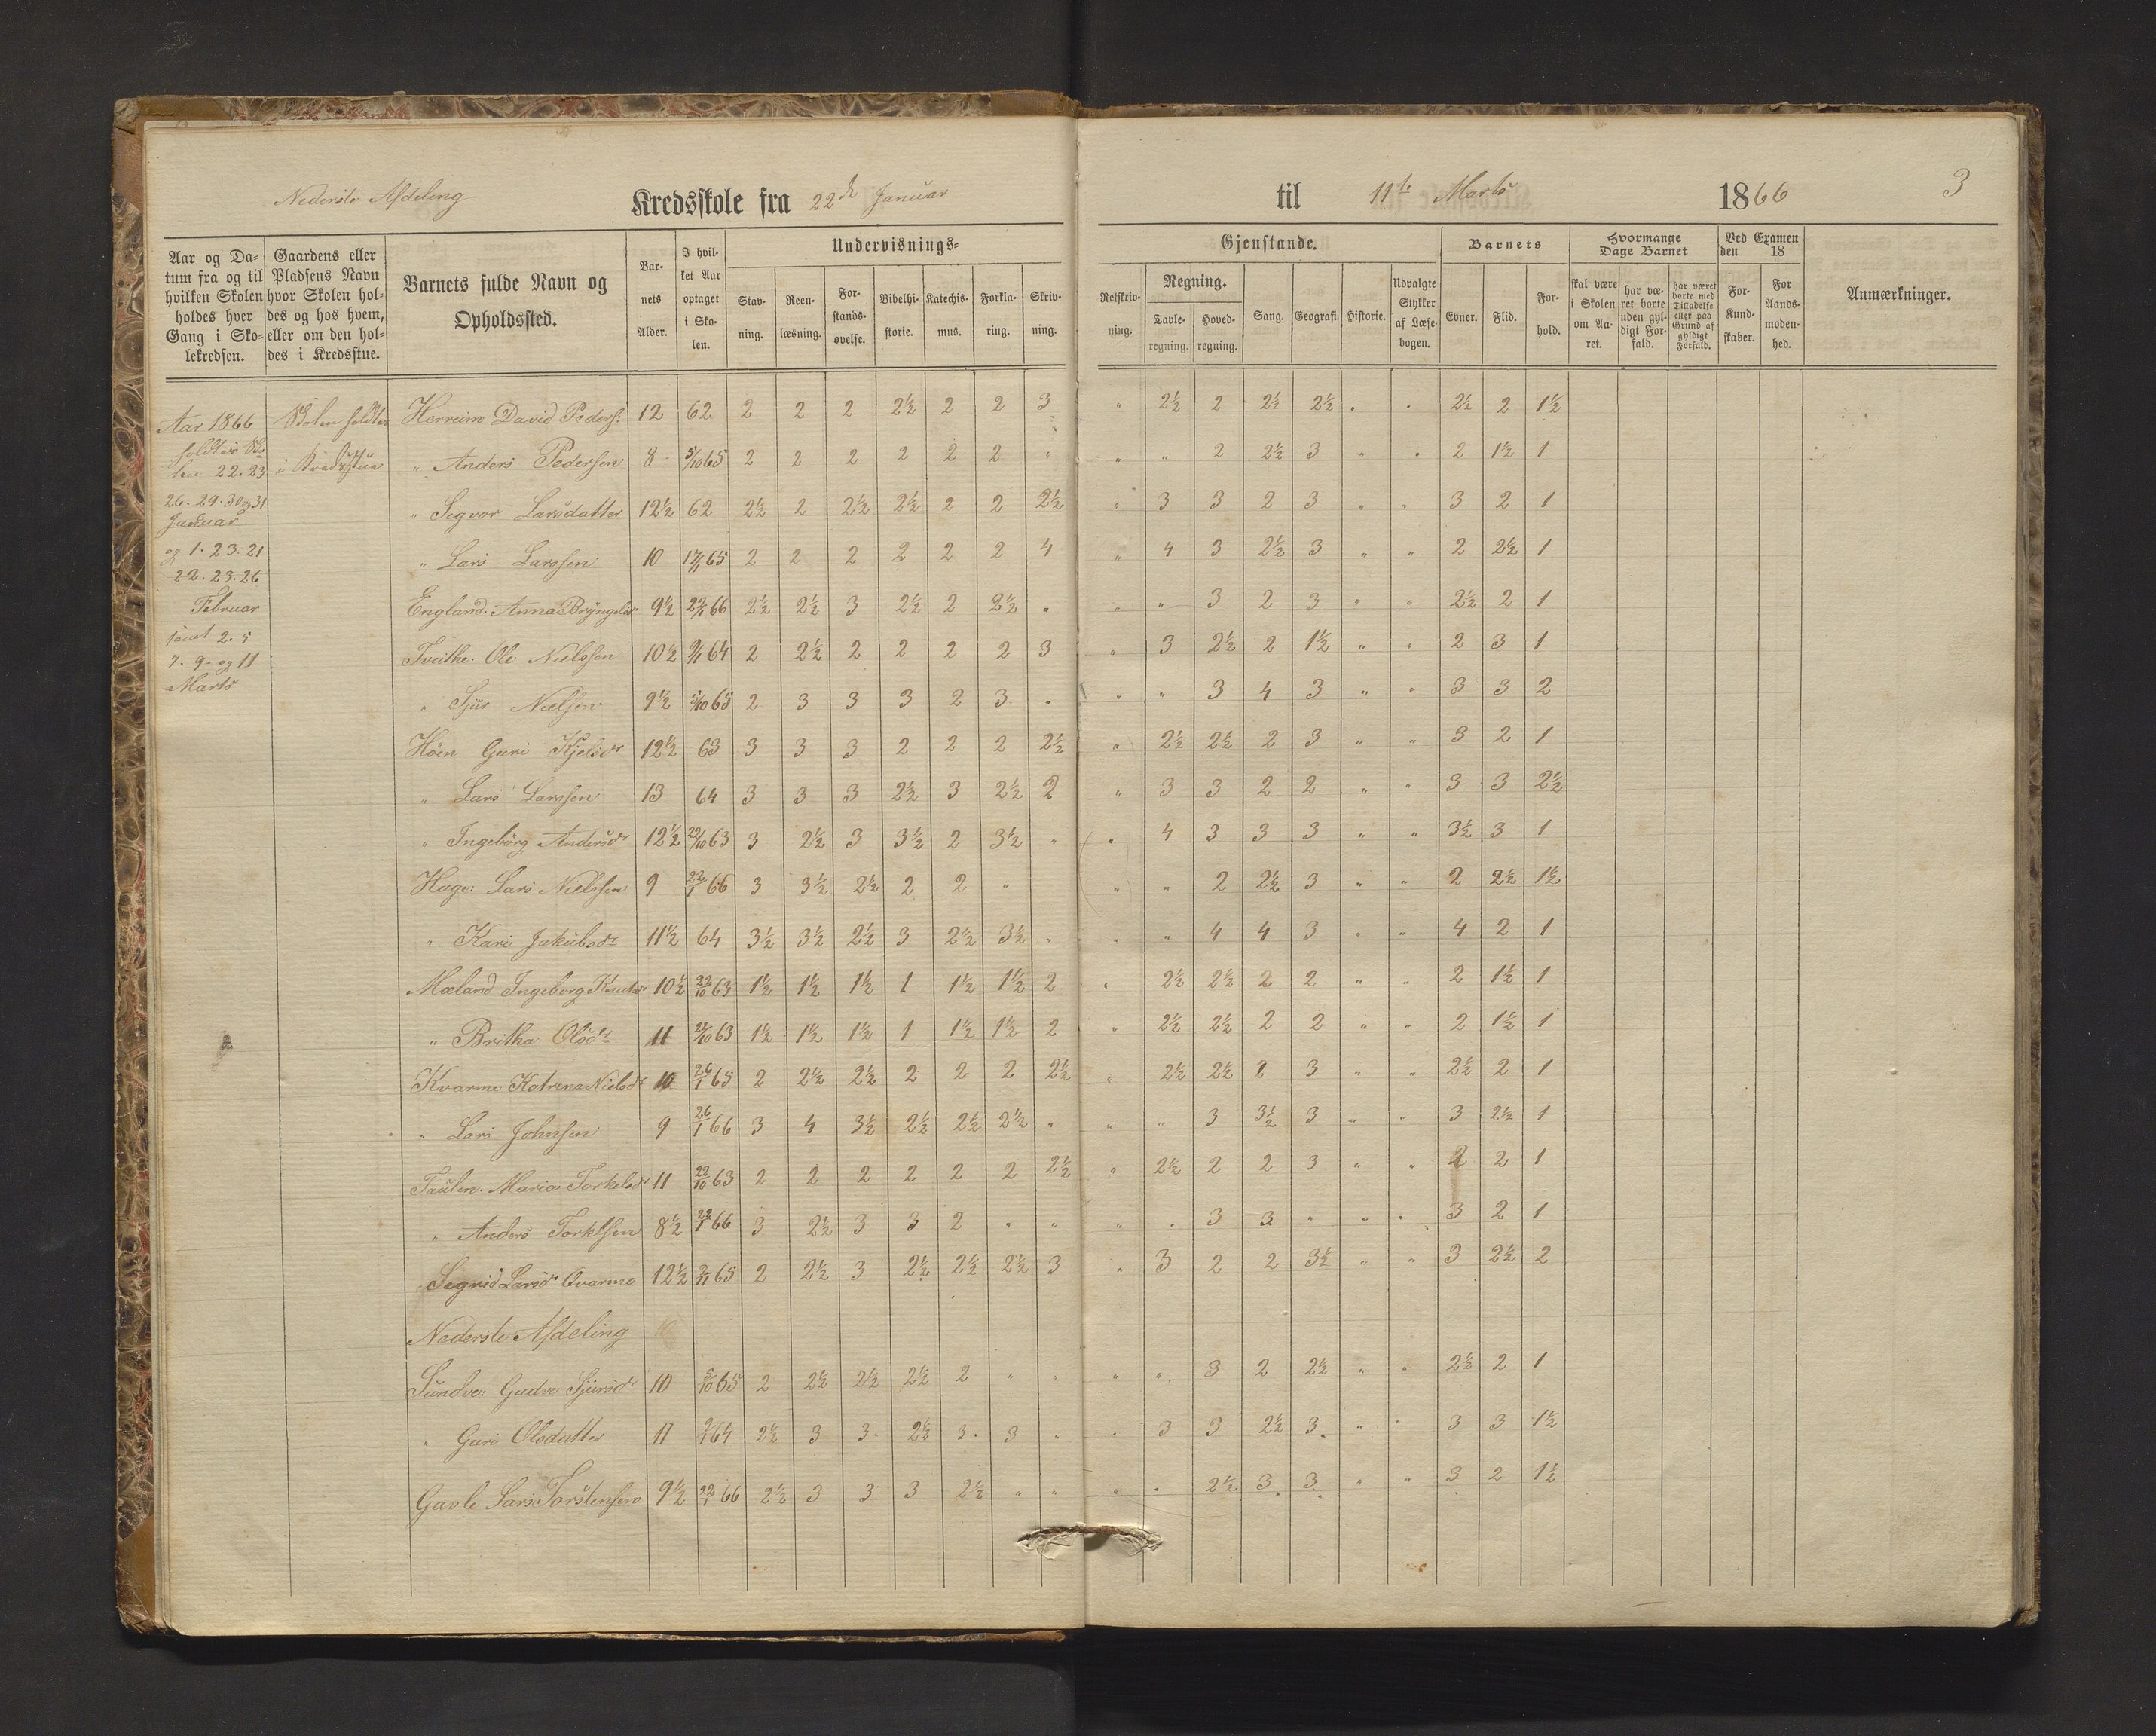 Nederste Afdeling Kredsskole fra 22de Januar til 11te Marts 1866 3
Aar og Datum fra og til hvilken Skolen holdes hver Gang i Skolekredsen.
Gaardens eller Pladsens Navn hvor Skolen holdes og hos hvem, eller om den holdes i Kredsstue.
Barnets fulde Navn og Opholdssted.
Barnets Alder.
I hvilket Aar optaget i Skolen.
Undervisnings-
Stavning. Reenlæsning. Forstandsøvelse. Bibelhistorie. Katechismus. Forklaring. Skrivning.
Gjenstande.
Retskrivning. Regning. Tavleregning. Hovedregning. Sang. Geografi. Historie. Udvalgte Stykker af Læsebogen.
Barnets
Evner. Flid. Forhold.
Hvormange Dage Barnet
skal være i Skolen om Aaret. har været borte uden gyldigt Forfald. har været borte med Tilladelse eller paa Grund af gyldigt Forfald.
Ved Examen den 18
For Kundskaber. For Aandsmodenhed.
Anmærkninger.
Aar 1866
holdtes Sko
len 22. 23
26. 29. 30 og 31
Januar
og 1. 23. 21
22. 23. 26
Februar
samt 2. 5
7. 9. og 11
Marts
Skolen holdtes
i Kredsstue
Herreim David Peders: 12 62 2 2 2 2½ 2 2 3 " 2½ 2 2½ 2½ . . 2½ 2 1½
" Anders Pedersen 8 5/10 65 2 2 2 2 2 2 " " " 2 2½ 3 " " 2 1½ 1
" Sigvor Larsdatter 12½ 62 2½ 2 2½ 2½ 2 2 2½ " 3 3 2 3 " " 3 2 1
" Lars Larssen 10 17/11 65 2 2 2 2 2 2 4 " 4 3 2½ 3 " " 2 2½ 1
England. Anna Bryngelsdr 9½ 22/1 66 2½ 2½ 3 2½ 2 2½ " " " 3 2 3 " " 2½ 2 1
Tveithe. Ole Nielssen 10½ 9/1 64 2 2½ 2 2 2 2 3 " 3 2½ 2 1½ " " 2 3 1
" Sjur Nielsen 9½ 5/10 65 2 3 3 3 2 3 " " " 3 4 3 " " 3 3 2
Höen Guri Kjelsdr 12½ 63 3 3 3 2 2 2 2½ " 2½ 2½ 2 3 " " 3 2 1
" Lars Larssen 13 64 3 3 3 2½ 3 2½ 2 " 3 3 2 2 " " 3 3 2½
" Ingebörg Andersdr 12½ 22/10 63 3 2½ 3 3½ 2 3½ " " 4 3 3 3 " " 3½ 3 1
Hage: Lars Nielssen 9 22/1 66 3 3½ 2½ 2 2 " " " 2 2½ 3 " " 2 2½ 1½
" Kari Jakobsdr 11½ 64 3½ 3½ 2½ 3 2½ 3½ " " " 4 4 3 " " 4 2 1
Mæland Ingeborg Knutsdr 10½ 22/10 63 1½ 1½ 1½ 1 1½ 1½ 2 " 2½ 2½ 2 2 " " 2 1½ 1
" Britha Olsdr 11 22/10 63 1½ 1½ 1½ 1 1½ 1½ 2 " 2½ 2½ 2 2 " " 2 1½ 1
Kvarme Katrina Nielsdr 10 26/1 65 2 2½ 2½ 2 2 2 2½ " 2½ 2½ 2 3 " " 2½ 2 1
" Lars Johnsen 9 26/1 66 3 4 3½ 2½ 2½ 2½ " " " 3 3½ 3 " " 3 2½ 1
Taulen. Maria Torkelsdr 11 22/10 63 2 2 2 2 2 2 2½ " 2½ 2 2 3 " " 2 2 1
" Anders Torkelsen 8½ 22/1 66 3 2½ 3 3 2 " " " " 3 3 " " " 3 2 1
Segrid Larsdr Qvarme 12½ 65 2 2½ 3 2½ 2½ 2½ 3 " 3 2 2 3½ " " 3 2½ 2
Nederste Afdeling
Sundve: Gudve Sjursdr 10 5/10 65 2 2½ 2½ 2½ 2 " " " " 3 2 2½ " " 2½ 2 1
" Guri Olsdatter 11 64 2½ 3 3 2½ 3 3 " " 3 3 2½ 3 " " 3 3 1½
Gavle Lars Torstensen 9½ 22/1 66 2½ 3 3 3 2½ " " " " 2½ 3 3 " " 3 2 1½